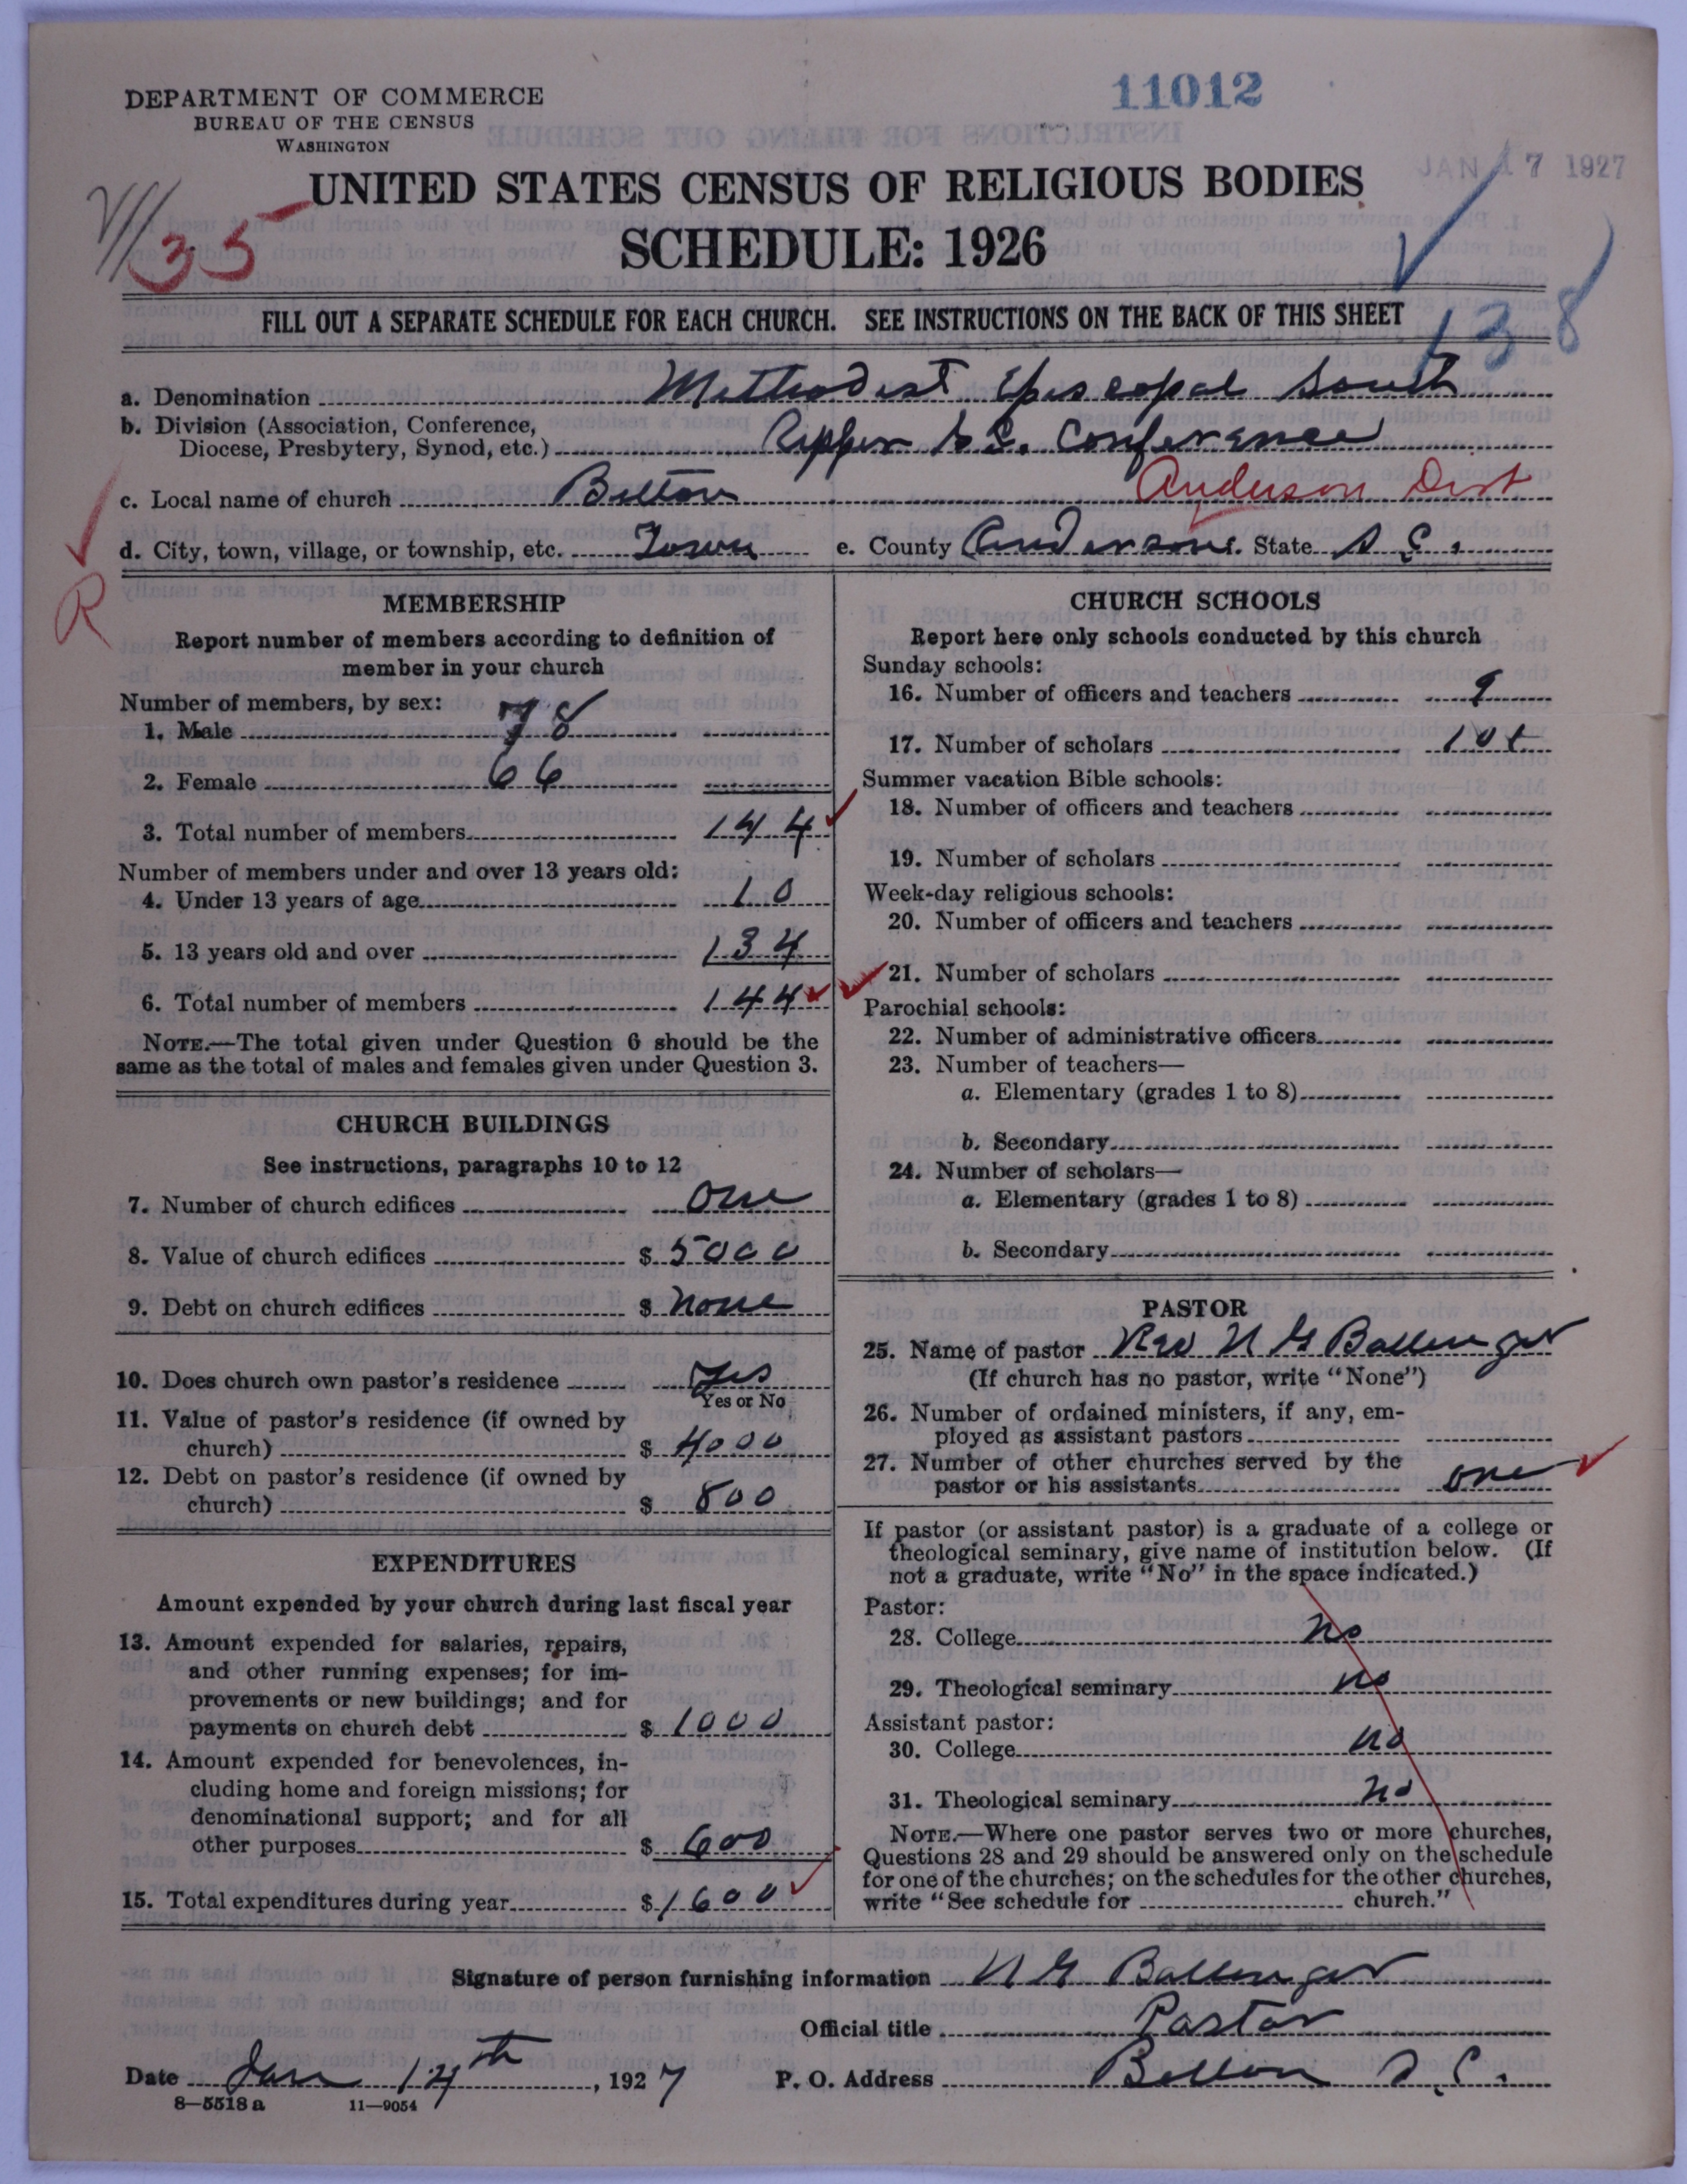 DEPARTMENT OF COMMERCE
BUREAU OF THE CENSUS
WASHINGTON
11012
JAN 17 1927
UNITED STATES CENSUS OF RELIGIOUS BODIES
SCHEDULE: 1926
35
138
FILL OUT A SEPARATE SCHEDULE FOR EACH CHURCH. SEE INSTRUCTIONS ON THE BACK OF THIS SHEET
a. Denomination Methodist Episcopal South
b. Division (Association, Conference,
Diocese, Presbytery, Synod, etc.) Upper S.C. Conference
c. Local name of church Belton Anderson Dist
d. City, town, village, or township, etc. Town e. County Anderson State S.C.
R
MEMBERSHIP
Report number of members according to definition of
member in your church
Number of members, by sex:
1. Male 78
2. Female 66
3. Total number of members 144
Number of members under and over 13 years old:
4. Under 13 years of age 10
5. 13 years old and over 134
6. Total number of members 144
NOTE.—The total given under Question 6 should be the
same as the total of males and females given under Question 3.
CHURCH BUILDINGS
See instructions, paragraphs 10 to 12
7. Number of church edifices one
8. Value of church edifices $ 5000
9. Debt on church edifices $ none
10. Does church own pastor's residence Yes
Yes or No
11. Value of pastor's residence (if owned by
church) $ 4000
12. Debt on pastor's residence (if owned by
church) $ 800
EXPENDITURES
Amount expended by your church during last fiscal year
13. Amount expended for salaries, repairs,
and other running expenses; for im-
provements or new buildings; and for
payments on church debt $ 1000
14. Amount expended for benevolences, in-
cluding home and foreign missions; for
denominational support; and for all
other purposes $ 600
15. Total expenditures during year $ 1600
CHURCH SCHOOLS
Report here only schools conducted by this church
Sunday schools:
16. Number of officers and teachers 9
17. Number of scholars
Summer vacation Bible schools:
18. Number of officers and teachers
19. Number of scholars
Week-day religious schools:
20. Number of officers and teachers
21. Number of scholars
Parochial schools:
22. Number of administrative officers
23. Number of teachers—
a. Elementary (grades 1 to 8)
b. Secondary
24. Number of scholars—
a. Elementary (grades 1 to 8)
b. Secondary
PASTOR
25. Name of pastor Rev N G Ballenger
(If church has no pastor, write "None")
26. Number of ordained ministers, if any, em-
ployed as assistant pastors
27. Number of other churches served by the
pastor or his assistants one
If pastor (or assistant pastor) is a graduate of a college or
theological seminary, give name of institution below. (If
not a graduate, write "No" in the space indicated.)
Pastor:
28. College no
29. Theological seminary no
Assistant pastor:
30. College no
31. Theological seminary no
NOTE.—Where one pastor serves two or more churches,
Questions 28 and 29 should be answered only on the schedule
for one of the churches; on the schedules for the other churches,
write "See schedule for church."
Signature of person furnishing information N G Ballenger
Official title Pastor
Date Jan 14th, 1927 P. O. Address Belton S.C.
8—5518 a 11—9054